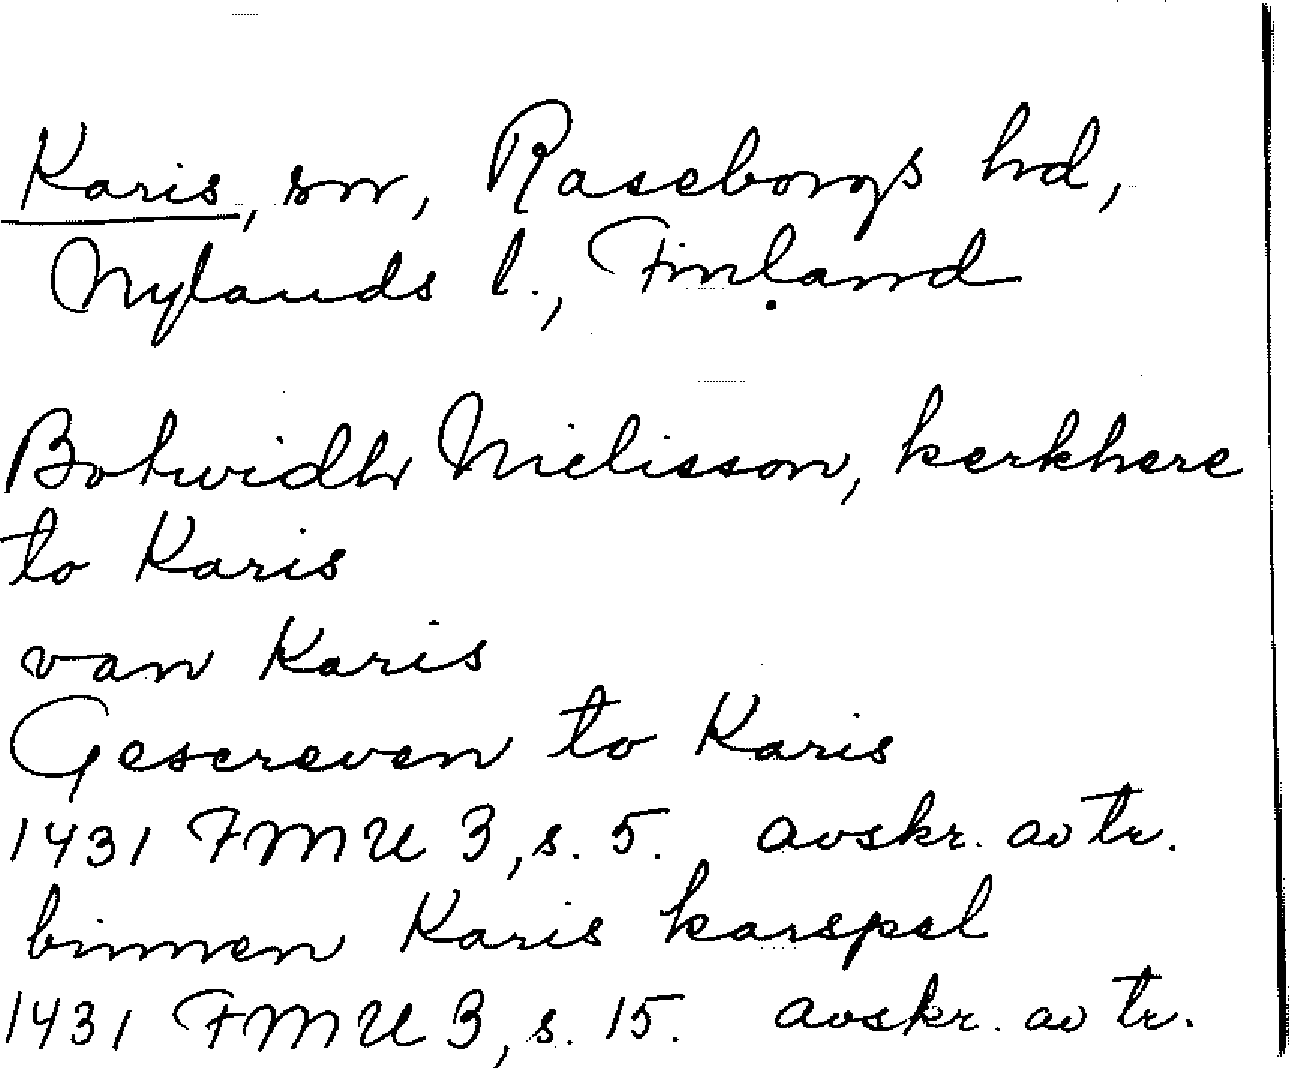 Karis, sn, Raseborgs hd,
Nylands l., Finland
Botwidh Nielisson, kerkhere
to Karis
van Karis
Gescreven to Karis
1431 FMU 3, s. 5. avskr. av tr.
binnen Karis karspel
1431 FMU 3, s. 15. avskr. av tr.